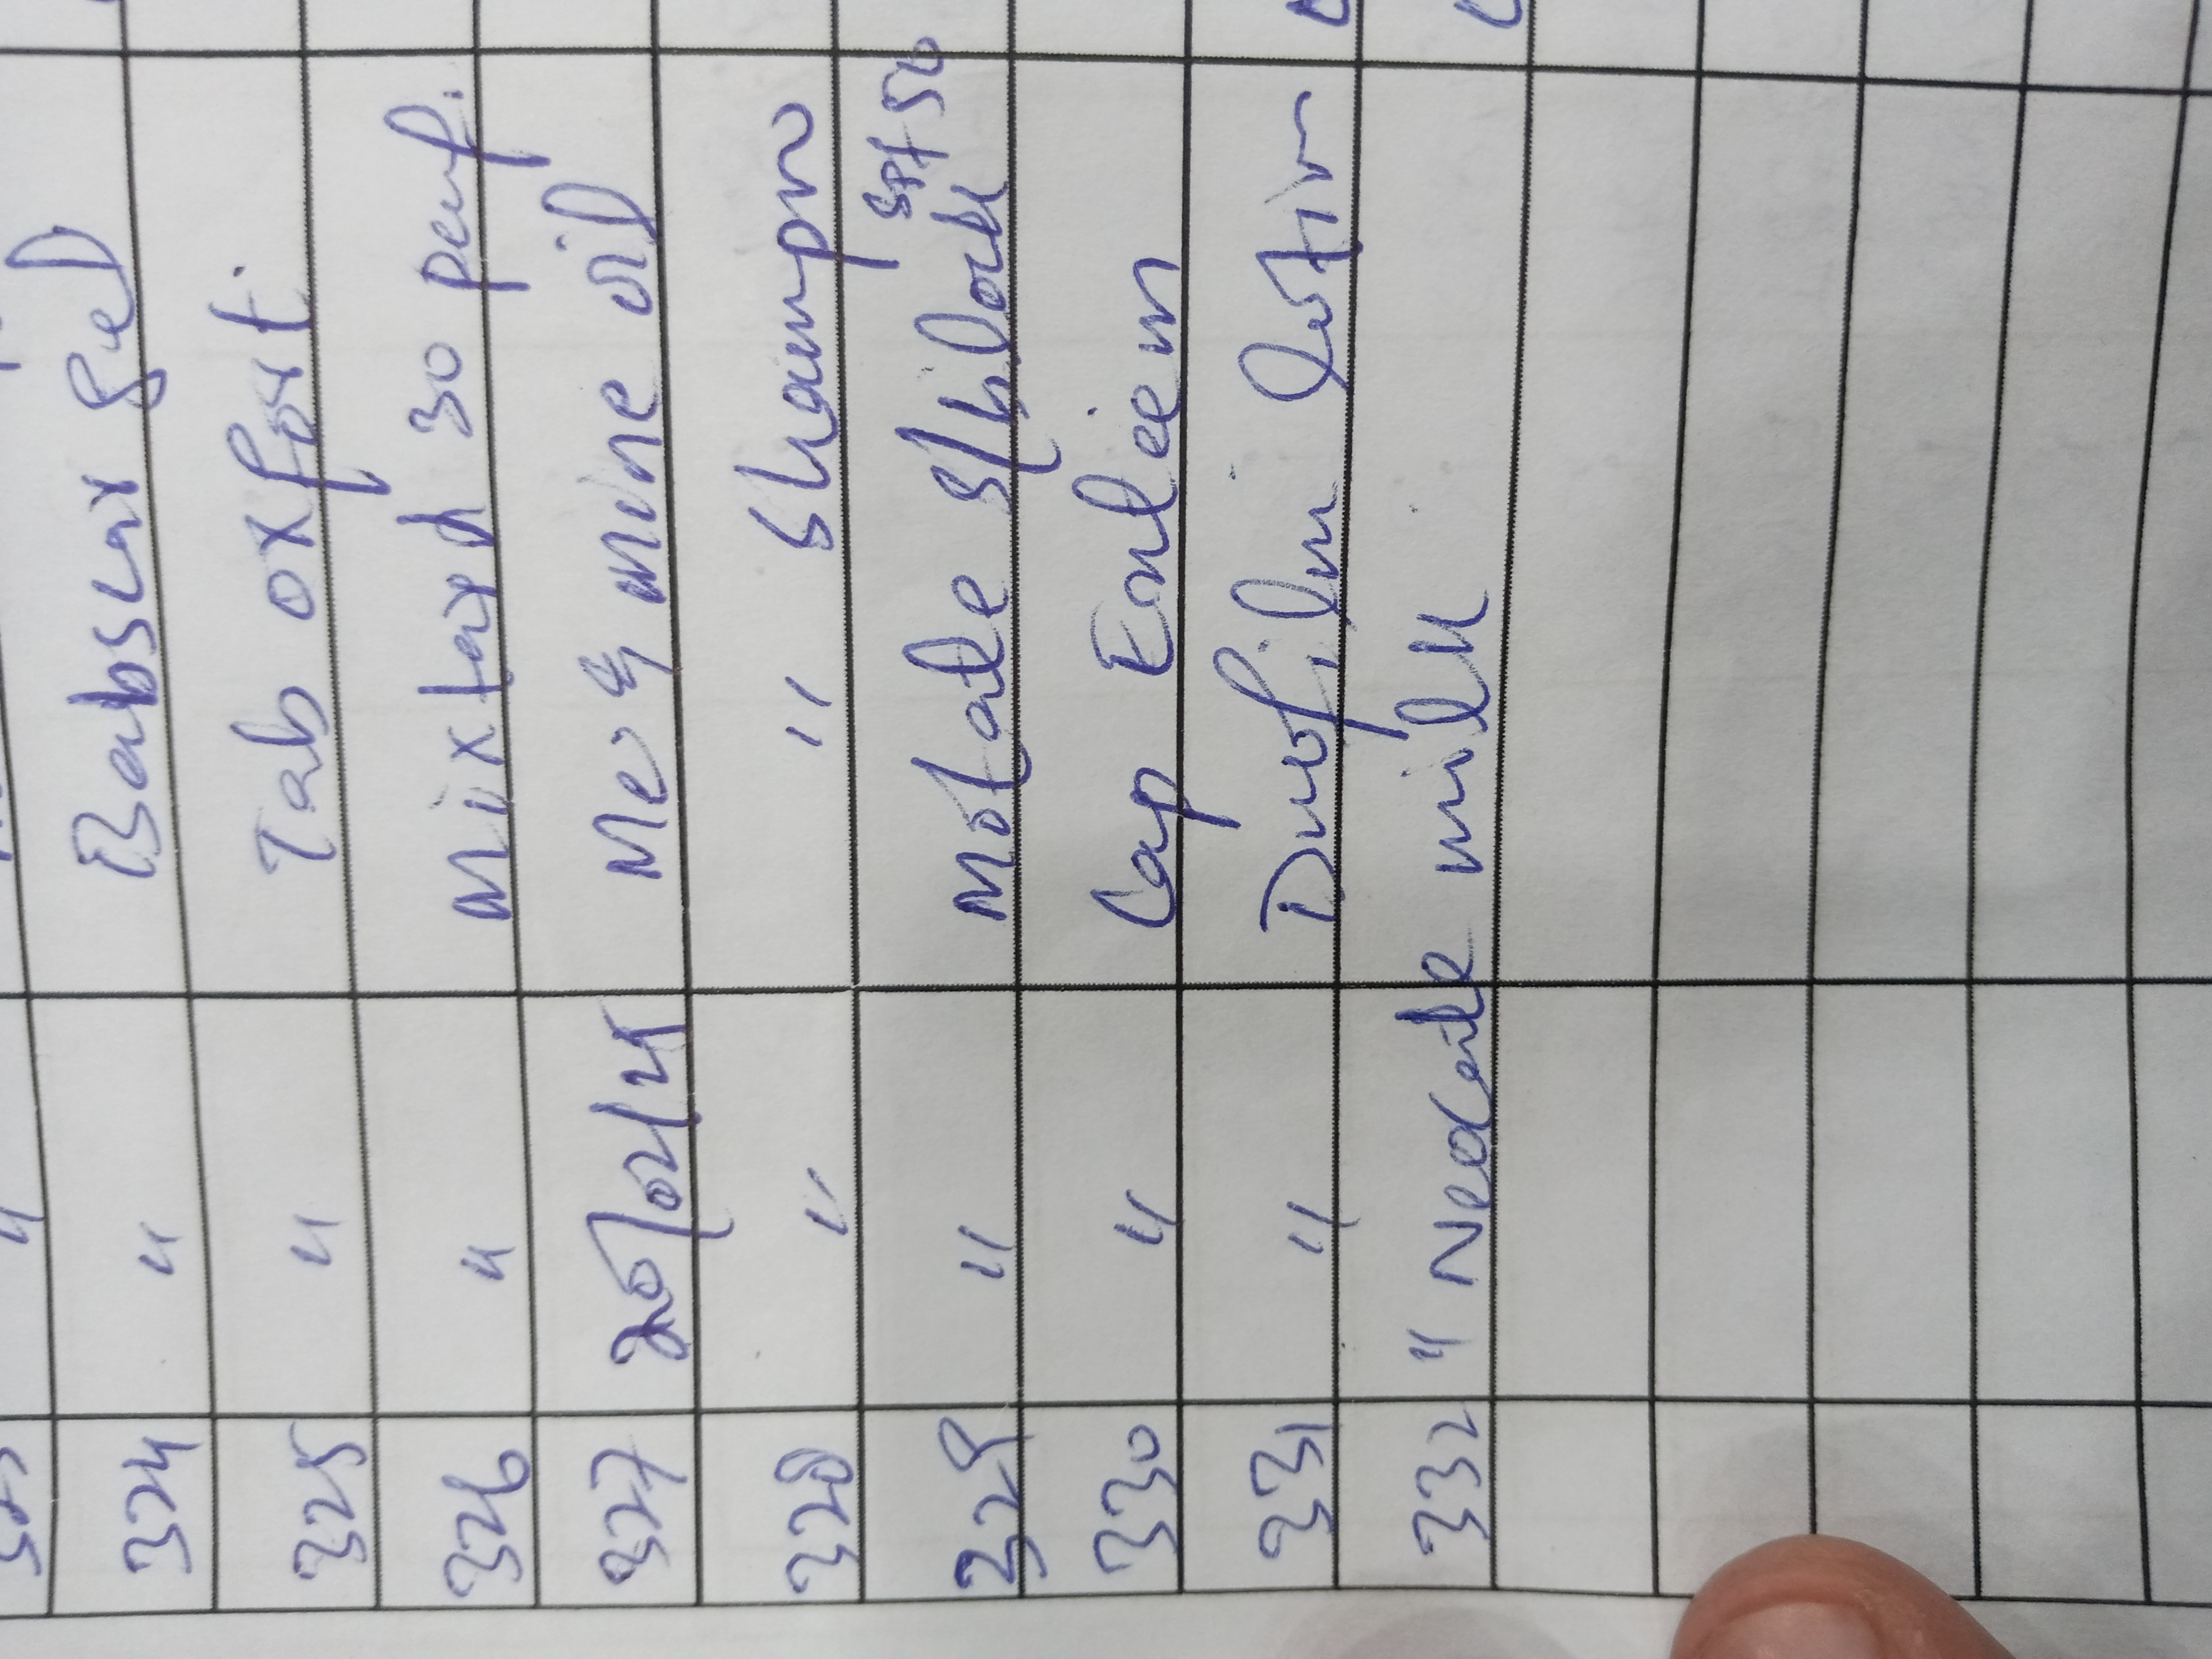 324 " Babscar gel
325 " Tab oxfort.
326 " Mixtard 30 penf.
327 Me & mine oil
328 " " Shampoo
329 " Molate S/block SPF 50
330 " Cap Enleem
331 " Duofilm Lotion
332 " Neocate milk